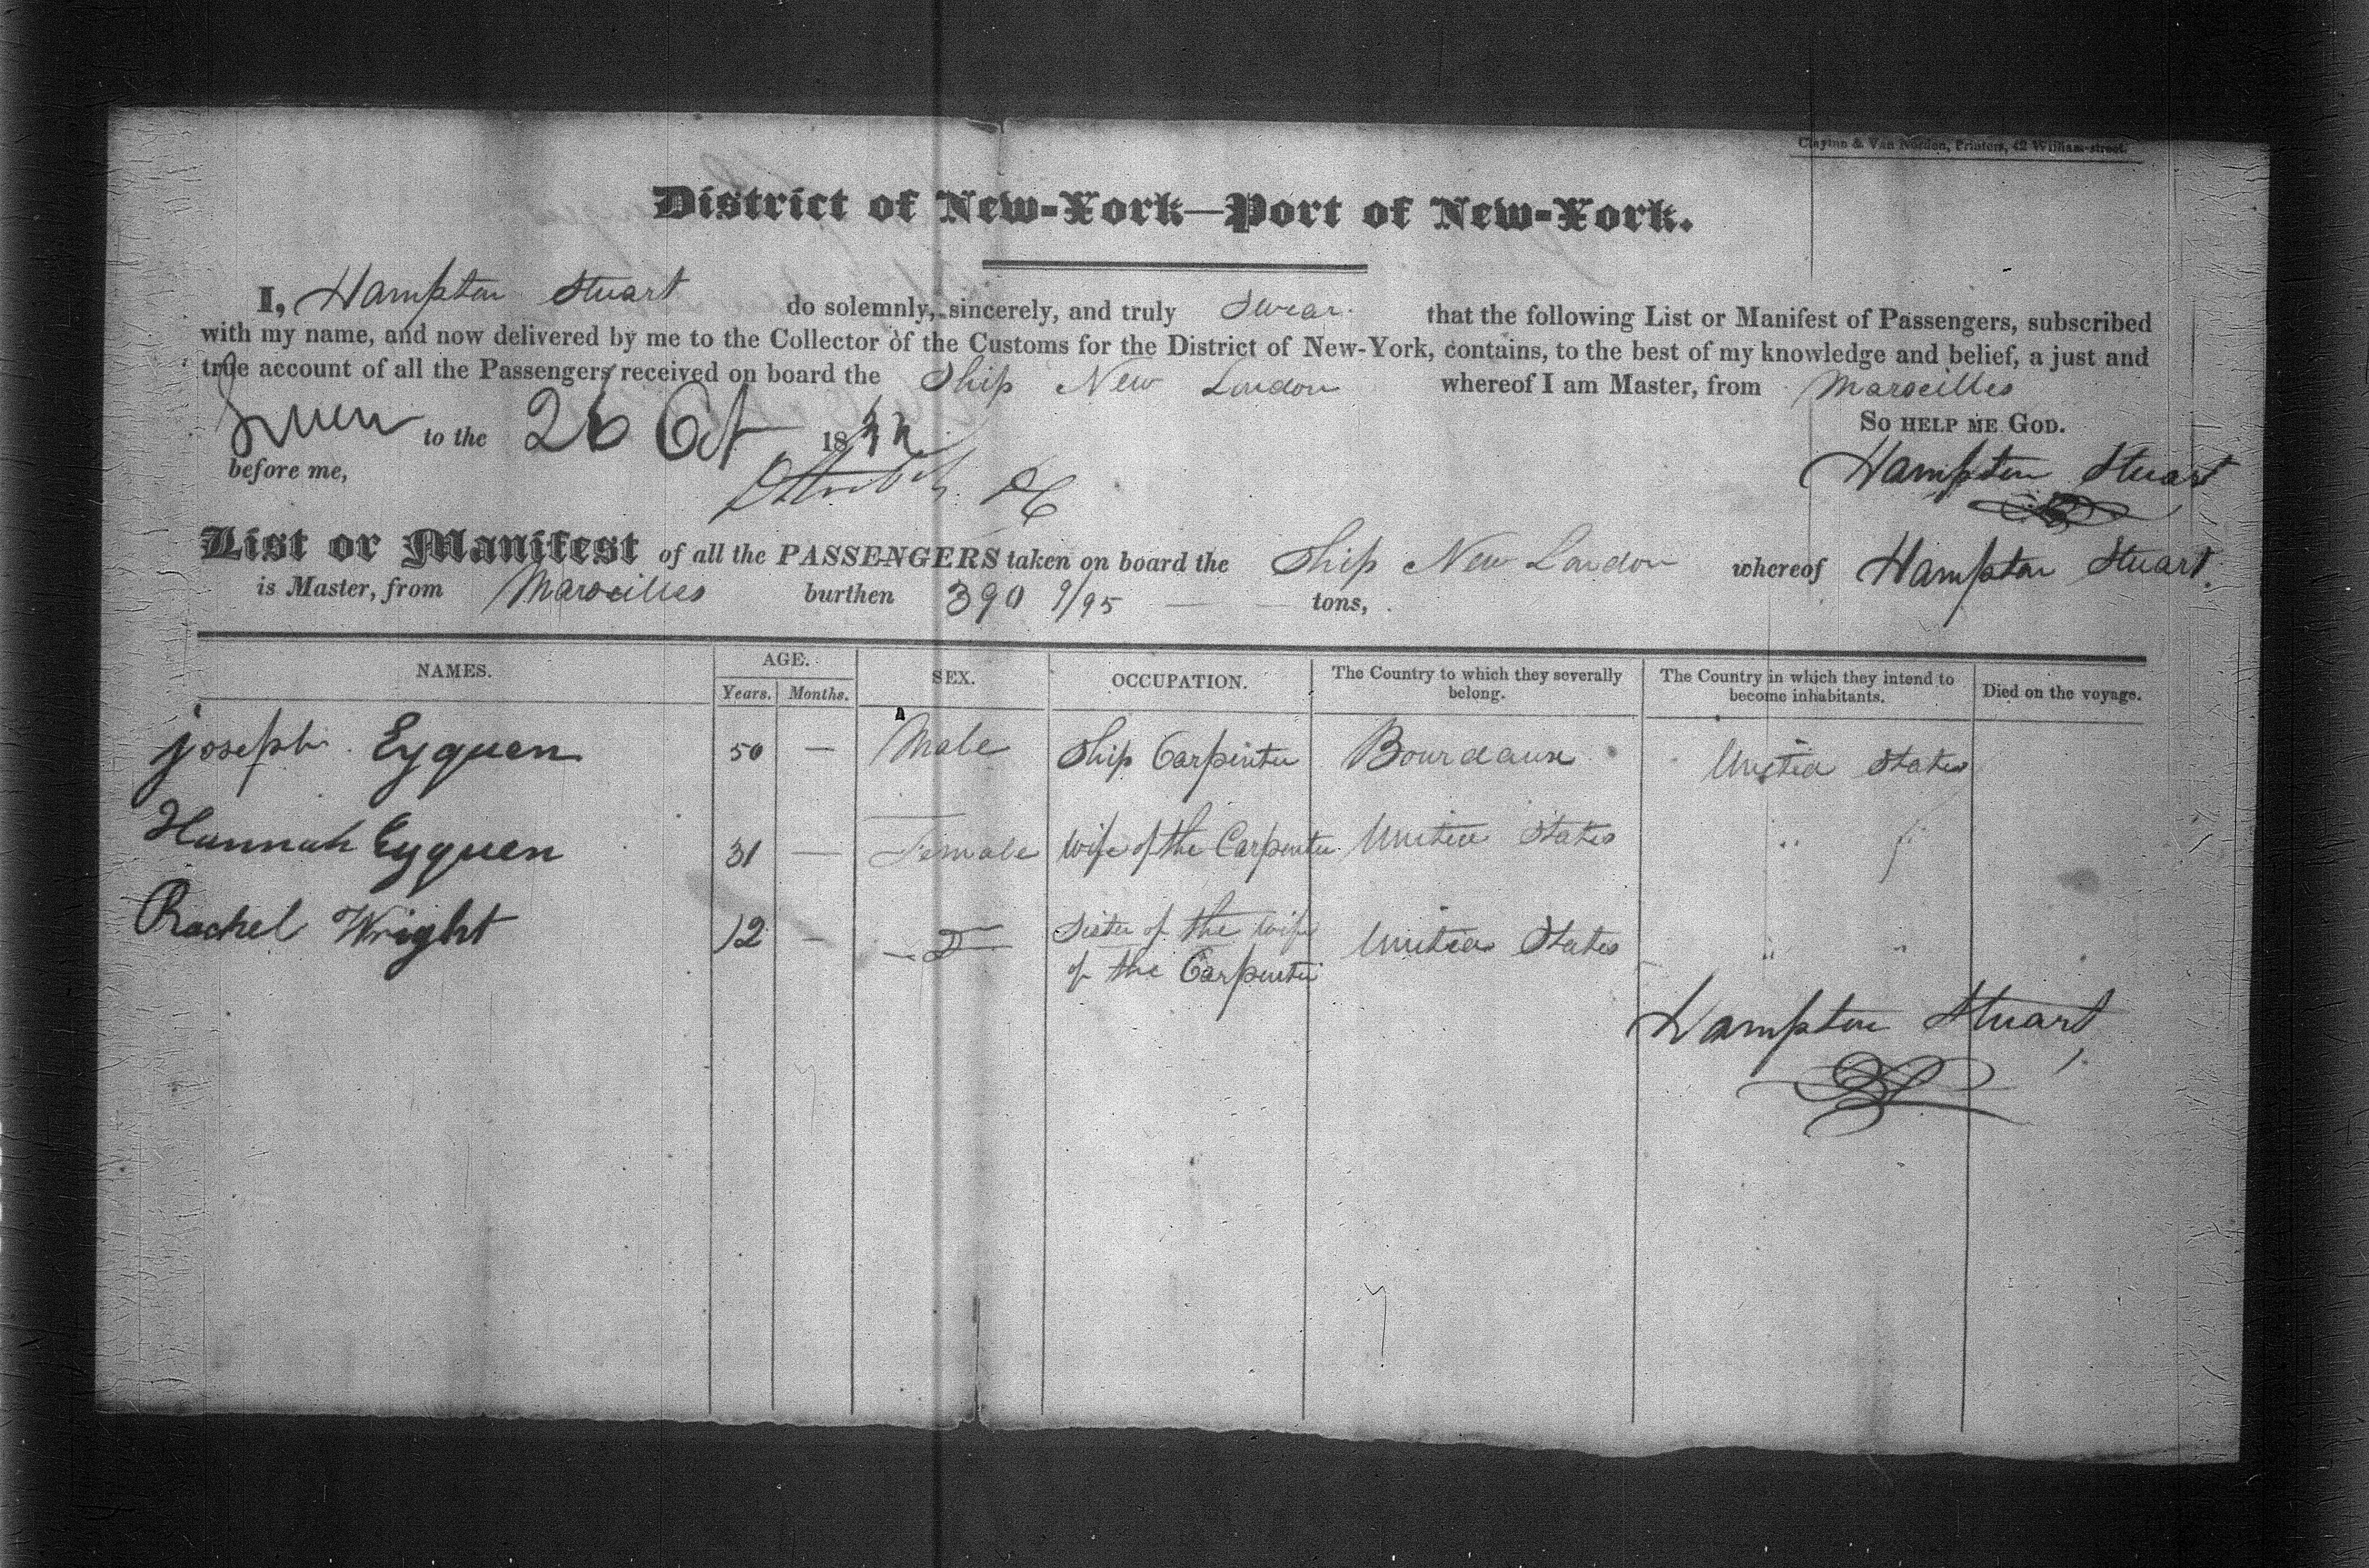 Clayton & Van Norden, Printers, 42 William-street.
District of New-York—Port of New-York.
I, Hampton Stuart do solemnly, sincerely, and truly Swear that the following List or Manifest of Passengers, subscribed
with my name, and now delivered by me to the Collector of the Customs for the District of New-York, contains, to the best of my knowledge and belief, a just and
true account of all the Passengers received on board the Ship New London whereof I am Master, from Marseilles
Sworn to the 26 Oct 18 So help me God.
before me, Hampton Stuart
List or Manifest of all the PASSENGERS taken on board the Ship New London whereof Hampton Stuart
is Master, from Marseilles burthen 390 9/95 tons,
NAMES. AGE. SEX. OCCUPATION. The Country to which they severally belong. The Country in which they intend to become inhabitants. Died on the voyage.
Years. Months.
Joseph Eyquen 50 — Male Ship Carpenter Bourdaux United States
Hannah Eyquen 31 — Female Wife of the Carpenter United States " "
Rachel Wright 12 — F Sister of the wife United States " "
of the Carpenter
Hampton Stuart